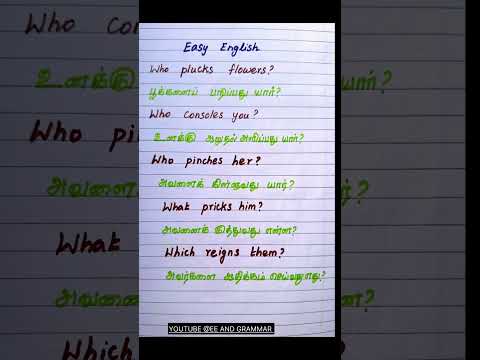 Easy English
Who plucks flowers?
பூக்களைப் பறிப்பது யார்?
Who consoles you?
உனக்கு ஆறுதல் அளிப்பது யார்?
Who pinches her?
அவளைக் கிள்ளுவது யார்?
What pricks him?
அவனைக் குத்துவது என்ன?
Which reigns them?
அவர்களை ஆதிக்கம் செய்வது எது?
YOUTUBE @EE AND GRAMMAR